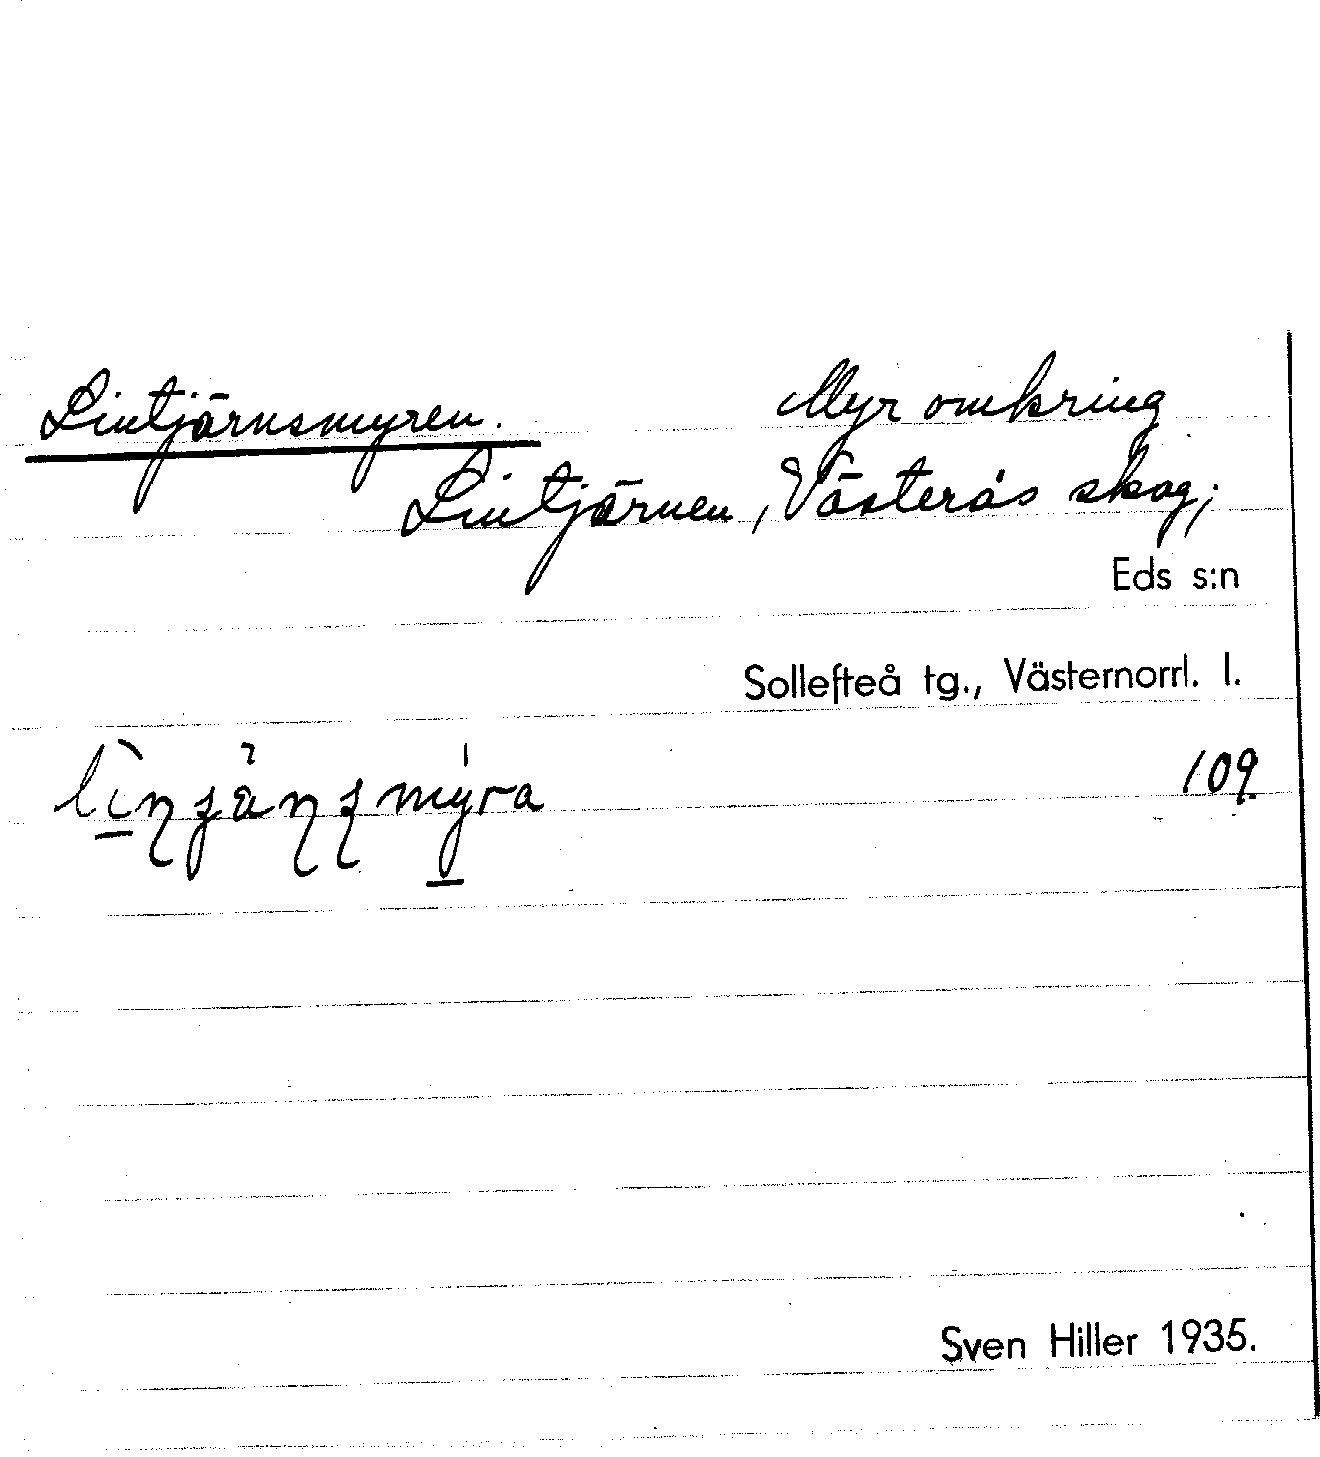 Lintjärnsmyren. Myr omkring
Lintjärnen, Västerås skog;
Eds s:n
Sollefteå tg., Västernorrl. l.
109.
Sven Hiller 1935.